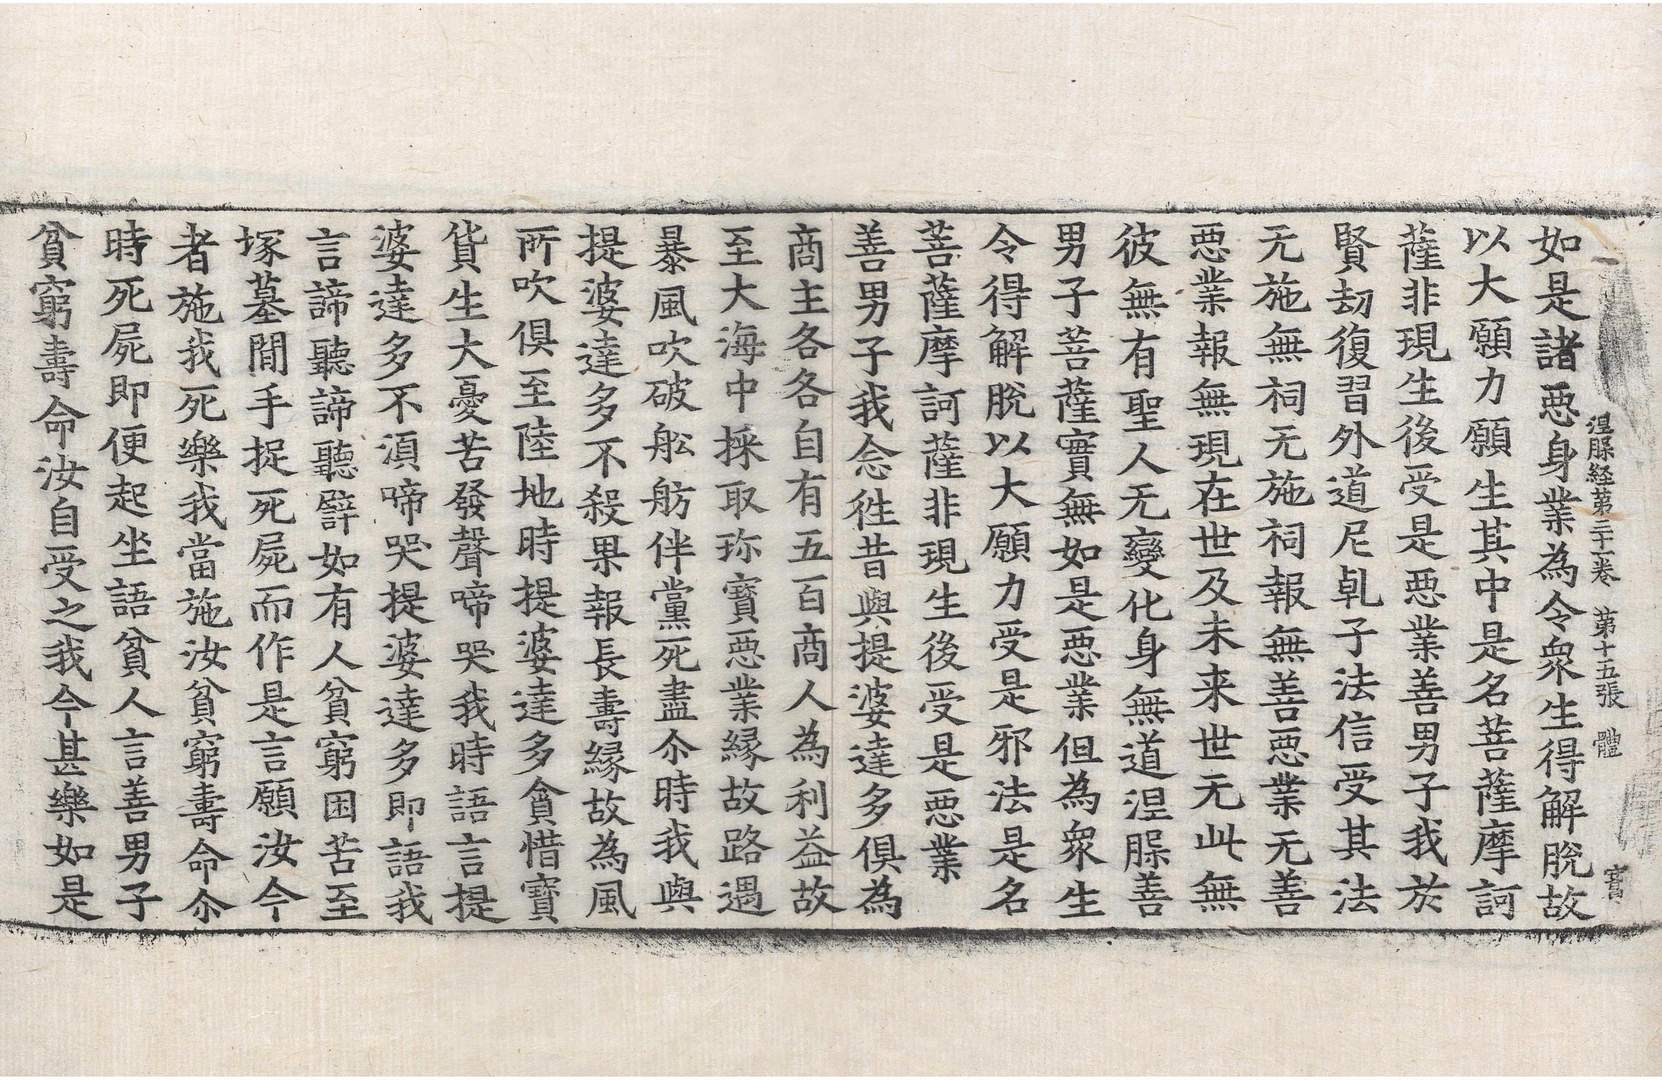 涅脲経第三十二卷　第十五張　體
如是諸惡身業為令眾生得解脫故
以大願力願生其中是名菩薩摩訶
薩非現生後受是惡業善男子我於
賢劫復習外道尼乹子法信受其法
无施無祠无施祠報無善惡業无善
惡業報無現在世及未来世无此無
彼無有聖人无變化身無道涅脲善
男子菩薩實無如是惡業但為眾生
令得解脫以大願力受是邪法是名
菩薩摩訶薩非現生後受是惡業
善男子我念徃昔與提婆達多俱為
商主各各自有五百商人為利益故
至大海中採取珎寶惡業緣故路遇
暴風吹破舩舫伴黨死盡尒時我與
提婆達多不殺果報長壽緣故為風
所吹俱至陸地時提婆達多貪惜寶
貨生大憂苦發聲啼哭我時語言提
婆達多不湏啼哭提婆達多即語我
言諦聽諦聽譬如有人貧窮困苦至
塚墓間手捉死屍而作是言願汝今
者施我死樂我當施汝貧窮壽命尒
時死屍即便起坐語貧人言善男子
貧窮壽命汝自受之我今甚樂如是